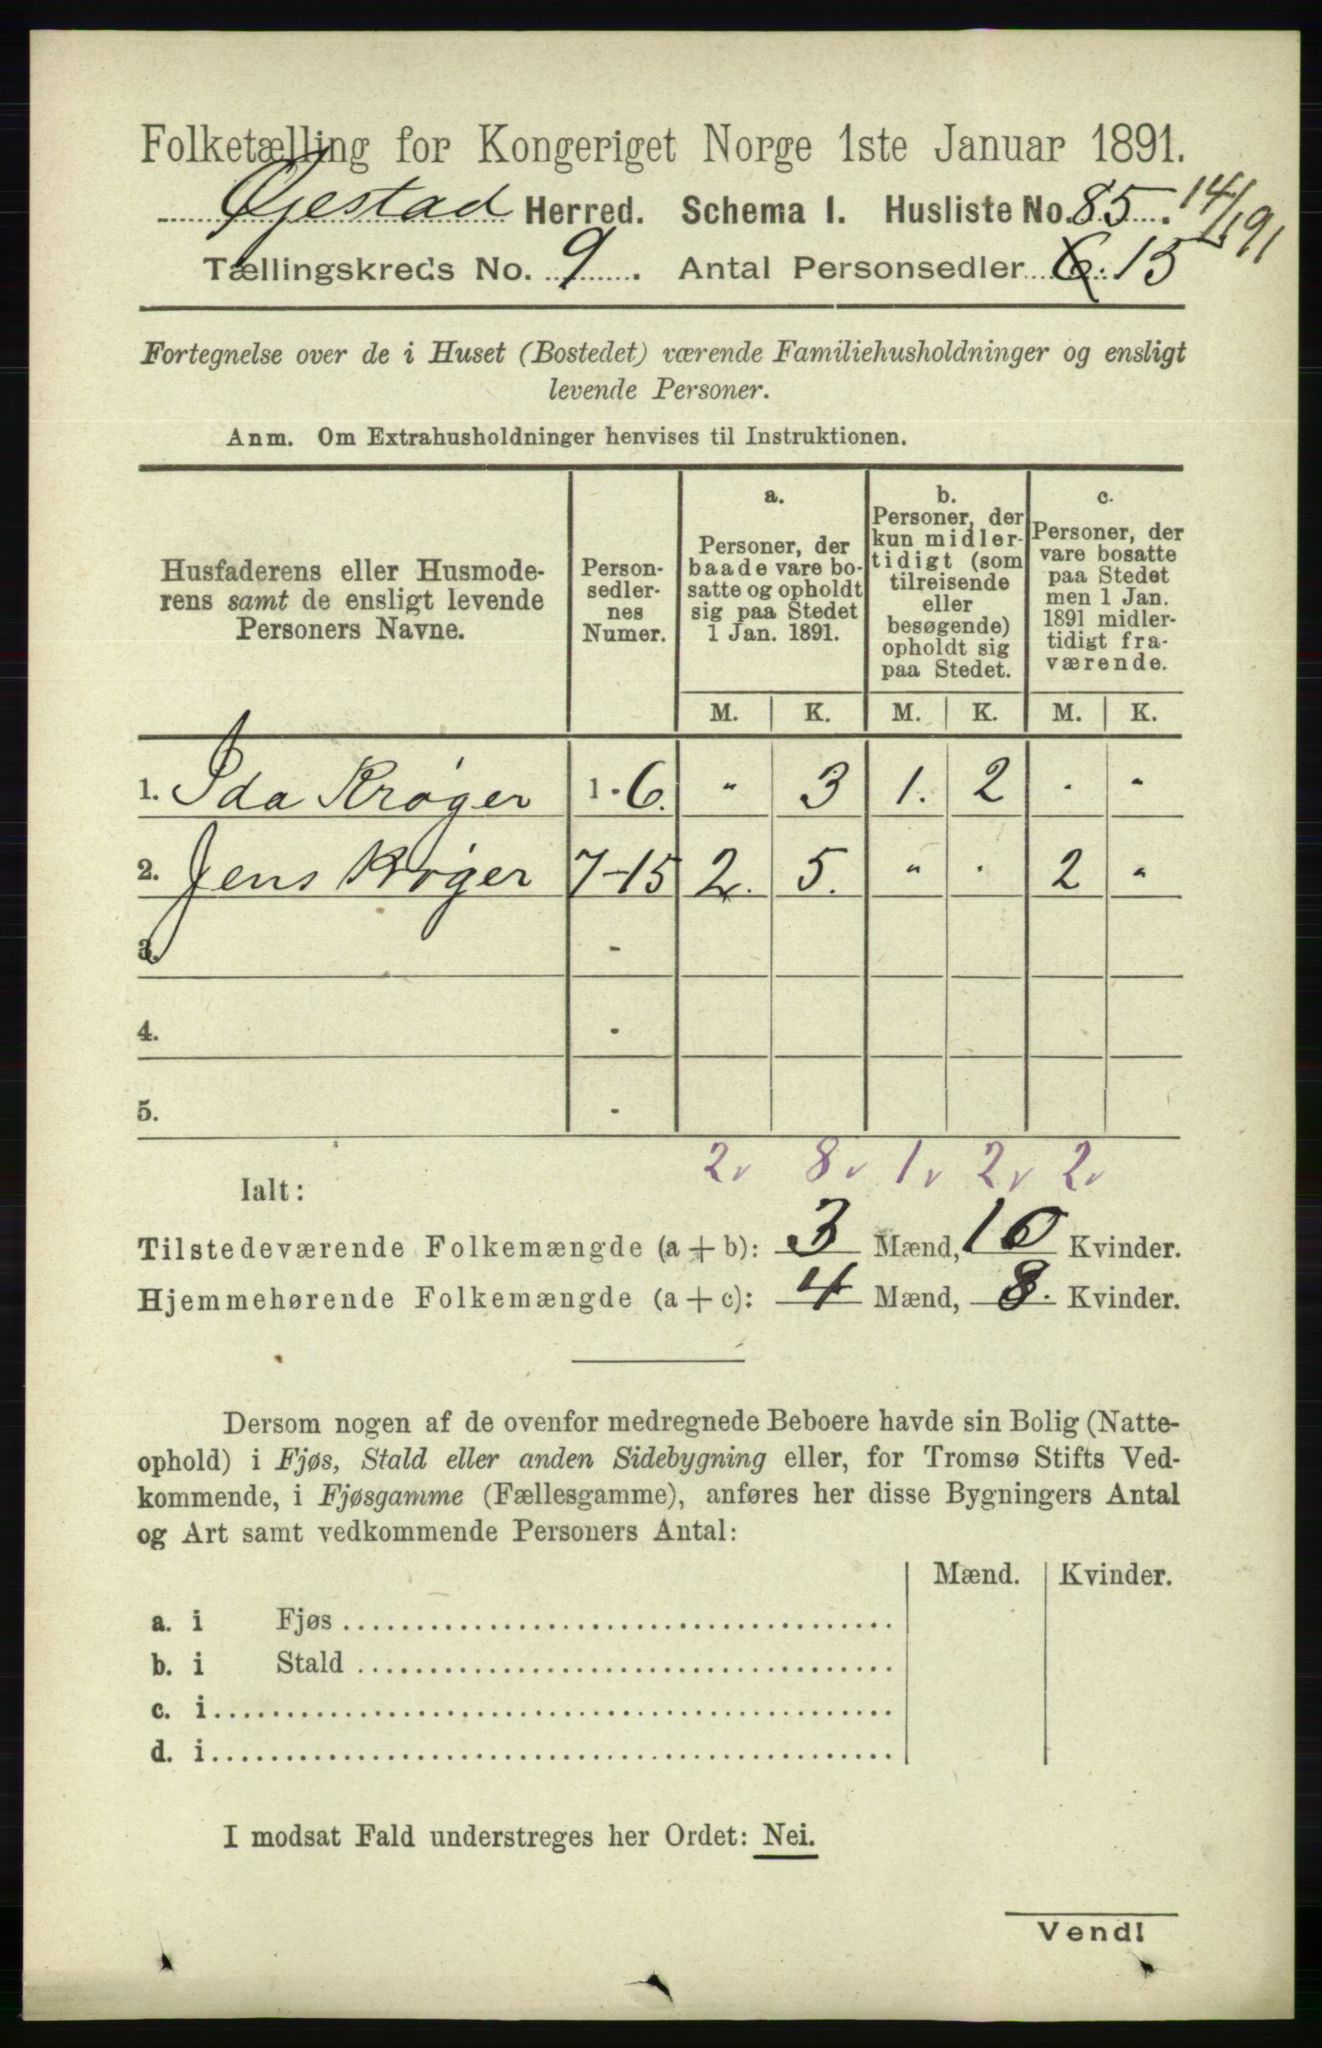 Folketælling for Kongeriget Norge 1ste Januar 1891.
Øjestad Herred. Schema I. Husliste No. 85. 14/1 91
Tællingskreds No. 9. Antal Personsedler 6. 15
Fortegnelse over de i Huset (Bostedet) værende Familiehusholdninger og ensligt
levende Personer.
Anm. Om Extrahusholdninger henvises til Instruktionen.
Husfaderens eller Husmode-
rens samt de ensligt levende
Personers Navne.
Person-
sedler-
nes
Numer.
a.
Personer, der
baade vare bo-
satte og opholdt
sig paa Stedet
1 Jan. 1891.
b.
Personer, der
kun midler-
tidigt (som
tilreisende
eller
besøgende)
opholdt sig
paa Stedet.
c.
Personer, der
vare bosatte
paa Stedet
men 1 Jan.
1891 midler-
tidigt fra-
værende.
M. K. M. K. M. K.
1. Ida Krøger 1 - 6. " 3 1. 2 . "
2. Jens Krøger 7-15 2. 5. " . 2 "
3. -
4. -
5. -
2 8 1 2 2
Ialt:
Tilstedeværende Folkemængde (a + b): 3 Mænd, 10 Kvinder.
Hjemmehørende Folkemængde (a + c): 4 Mænd, 8. Kvinder.
Dersom nogen af de ovenfor medregnede Beboere havde sin Bolig (Natte-
ophold) i Fjøs, Stald eller anden Sidebygning eller, for Tromsø Stifts Ved-
kommende, i Fjøsgamme (Fællesgamme), anføres her disse Bygningers Antal
og Art samt vedkommende Personers Antal:
Mænd. Kvinder.
a. i Fjøs
b. i Stald
c. i
d. i
I modsat Fald understreges her Ordet: Nei.
Vend!